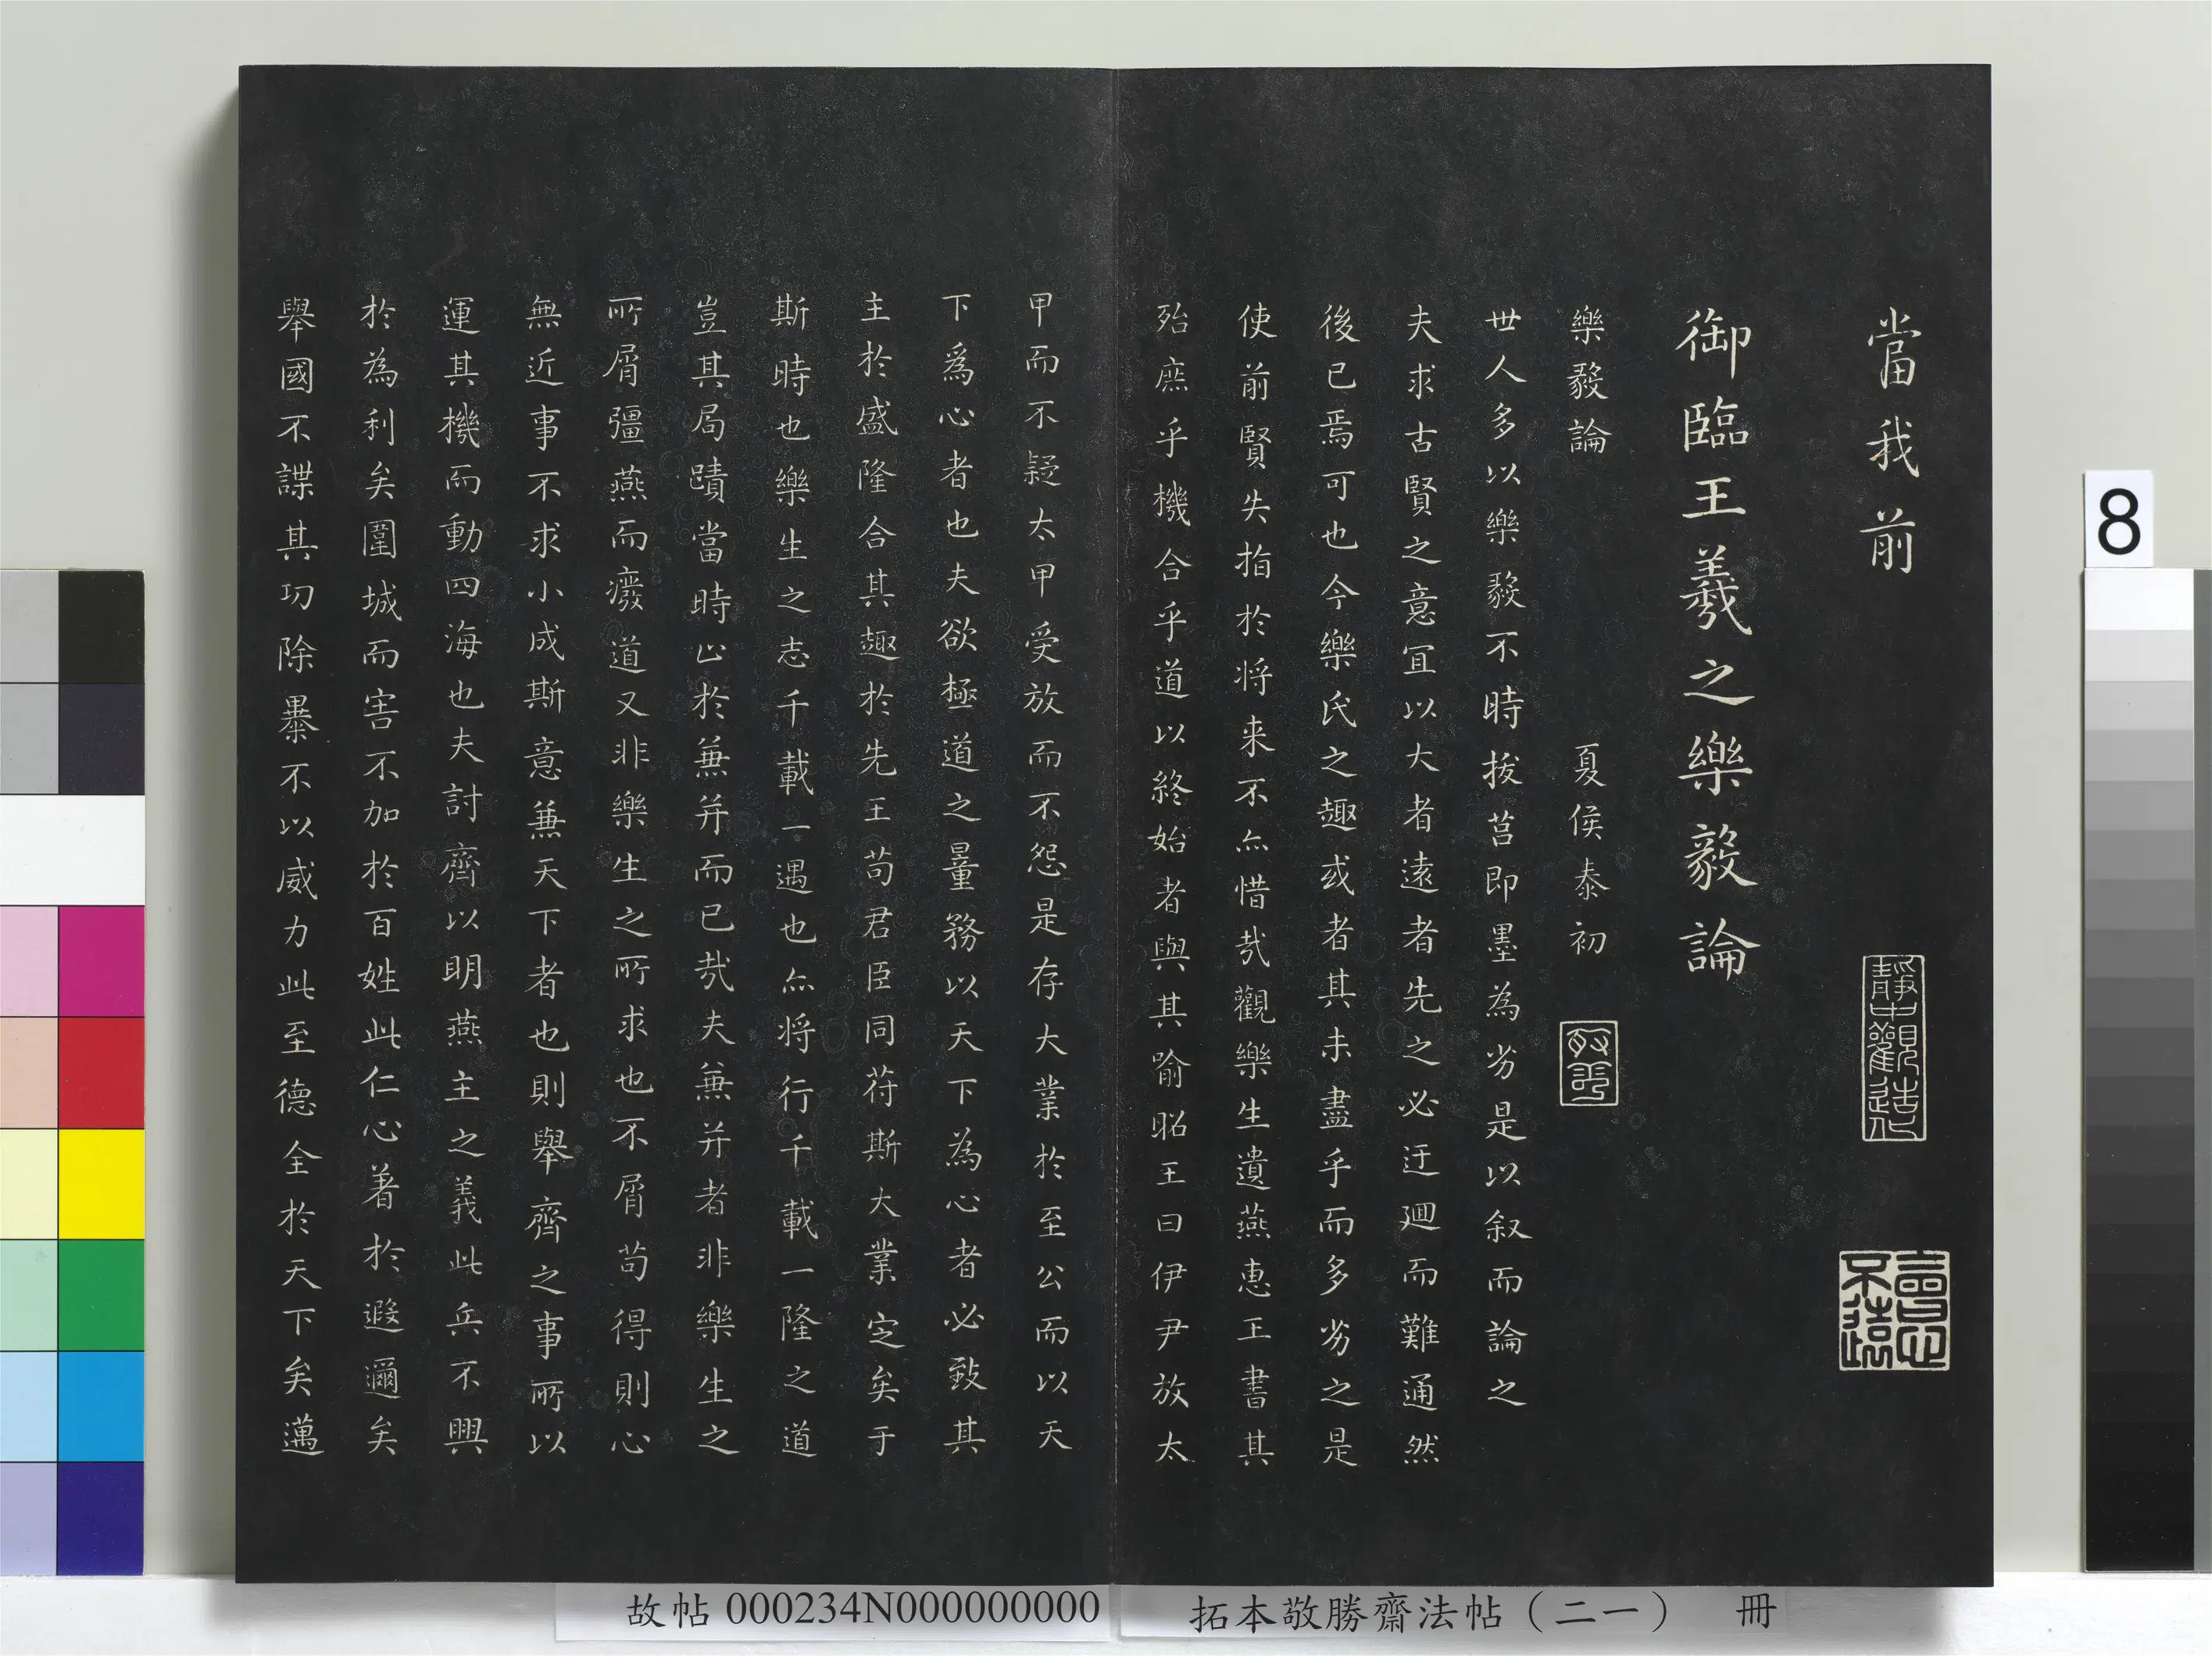 當我前
靜中觀造化
會心不遠
御臨王羲之樂毅論
樂毅論 夏侯泰初
世人多以樂毅不時拔莒即墨為劣是以叙而論之
夫求古賢之意宜以大者遠者先之必迂迴而難通然
後已焉可也今樂氏之趣或者其未盡乎而多劣之是
使前賢失指於將来不亦惜哉觀樂生遺燕惠王書其
殆庶乎機合乎道以終始者與其喻昭王曰伊尹放太
甲而不疑太甲受放而不怨是存大業於至公而以天
下爲心者也夫欲極道之量務以天下為心者必致其
主於盛隆合其趣於先王苟君臣同符斯大業定矣于
斯時也樂生之志千載一遇也亦將行千載一隆之道
豈其局蹟當時止於兼并而已哉夫兼并者非樂生之
所屑彊燕而癈道又非樂生之所求也不屑苟得則心
無近事不求小成斯意兼天下者也則舉齊之事所以
運其機而動四海也夫討齊以明燕主之義此兵不興
於為利矣圍城而害不加於百姓此仁心著於遐邇矣
舉國不謀其功除暴不以威力此至德全於天下矣邁
8
故帖 000234N000000000
拓本敬勝齋法帖（二一） 冊